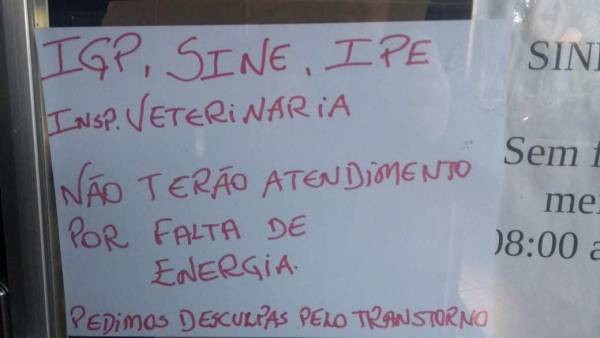 IGP, SINE, IPE
INSP. VETERINÁRIA
NÃO TERÃO ATENDIMENTO
POR FALTA DE
ENERGIA.
PEDIMOS DESCULPAS PELO TRANSTORNO
SIN
Sem f
me
08:00 a